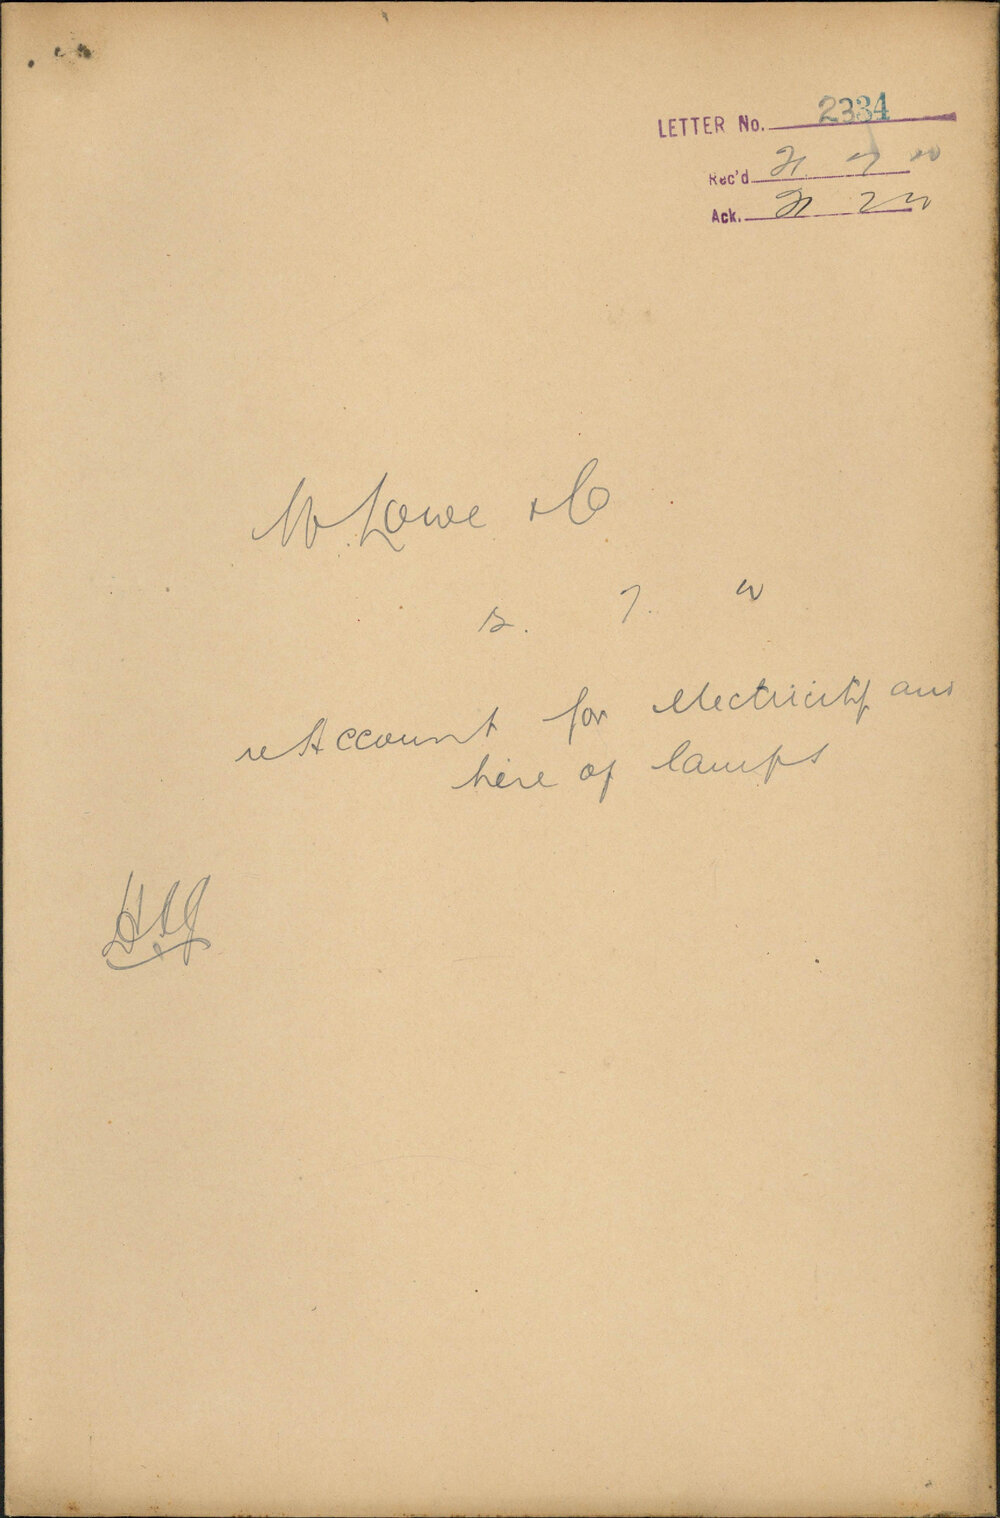 LETTER No. 2334
Rec'd 21 7 20
Ack. 21 7 20
W Lowe & Co
7. 20
re Account for electricity and
hire of lamps